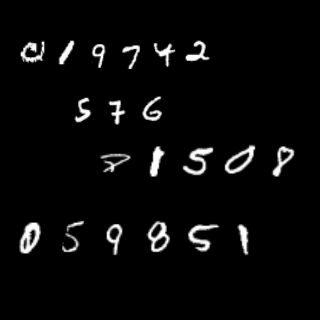 019742
576
81508
059851